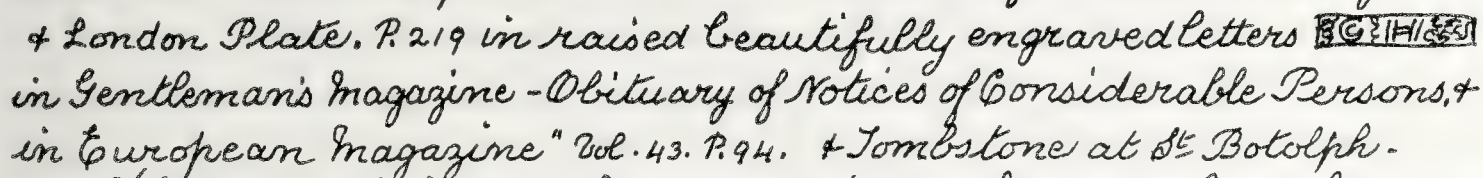 & London Plate. P. 219 in raised beautifully engraved letters
in Gentleman's Magazine - Obituary of Notices of Considerable Persons, &
in European Magazine" Vol. 43. P. 94. & Tombstone at St Botolph -